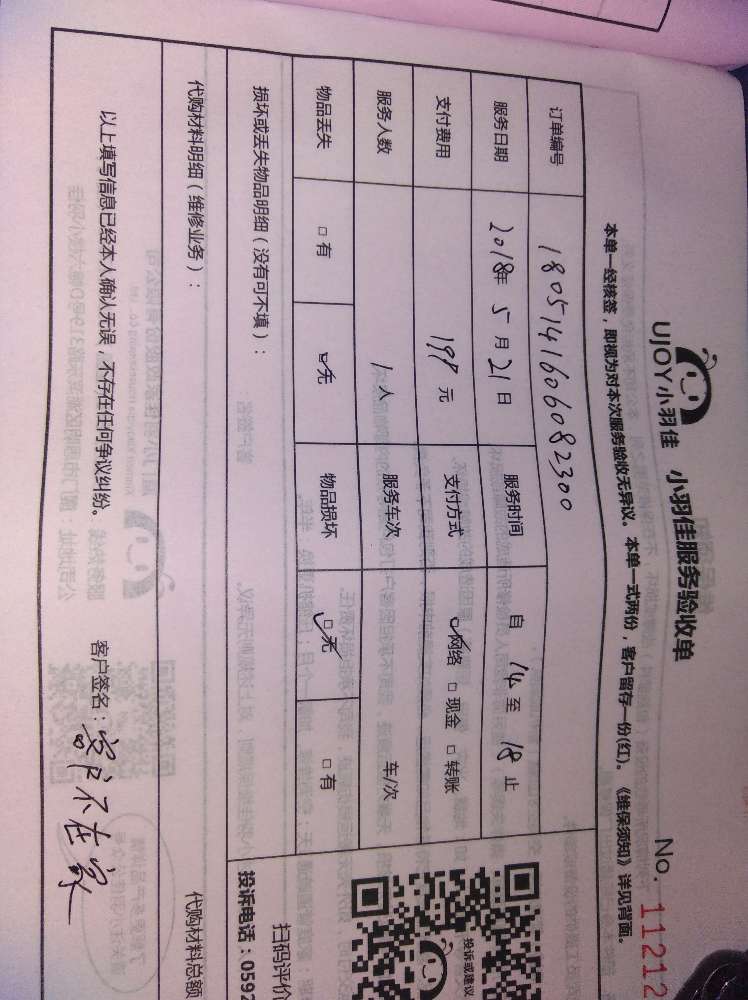 UJOY小羽佳 小羽佳服务验收单 No. 11212
本单一经核签，即视为对本次服务验收无异议。本单一式两份，客户留存一份(红)。《维保须知》详见背面。
订单编号 1805141606082300
服务日期 2018年 5月21日 服务时间 自 14 至 18 止
支付费用 198元 支付方式 ☑网络 □现金 □转账
服务人数 1人 服务车次 车/次
物品丢失 □有 ☑无 物品损坏 ☑无 □有
损坏或丢失物品明细（没有可不填）：
代购材料明细（维修业务）： 代购材料总额
以上填写信息已经本人确认无误，不存在任何争议纠纷。 客户签名：客户不在家
投诉或建议
扫码评价
投诉电话：0592